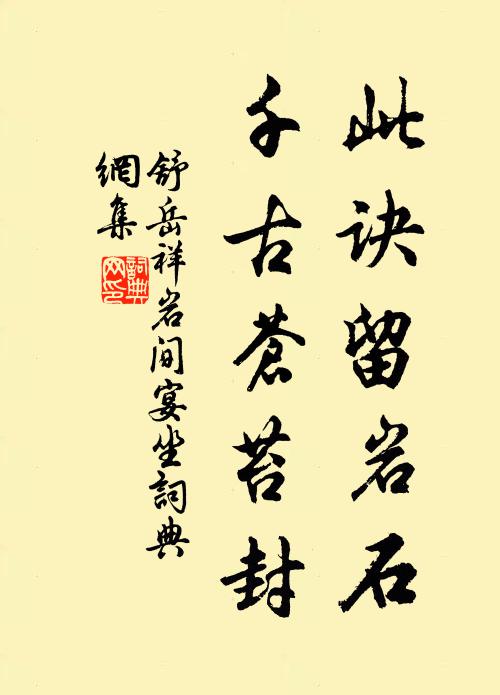 此訣留岩石
千古蒼苔封
舒岳祥岩间宴坐詞典
網集
詞典
网印